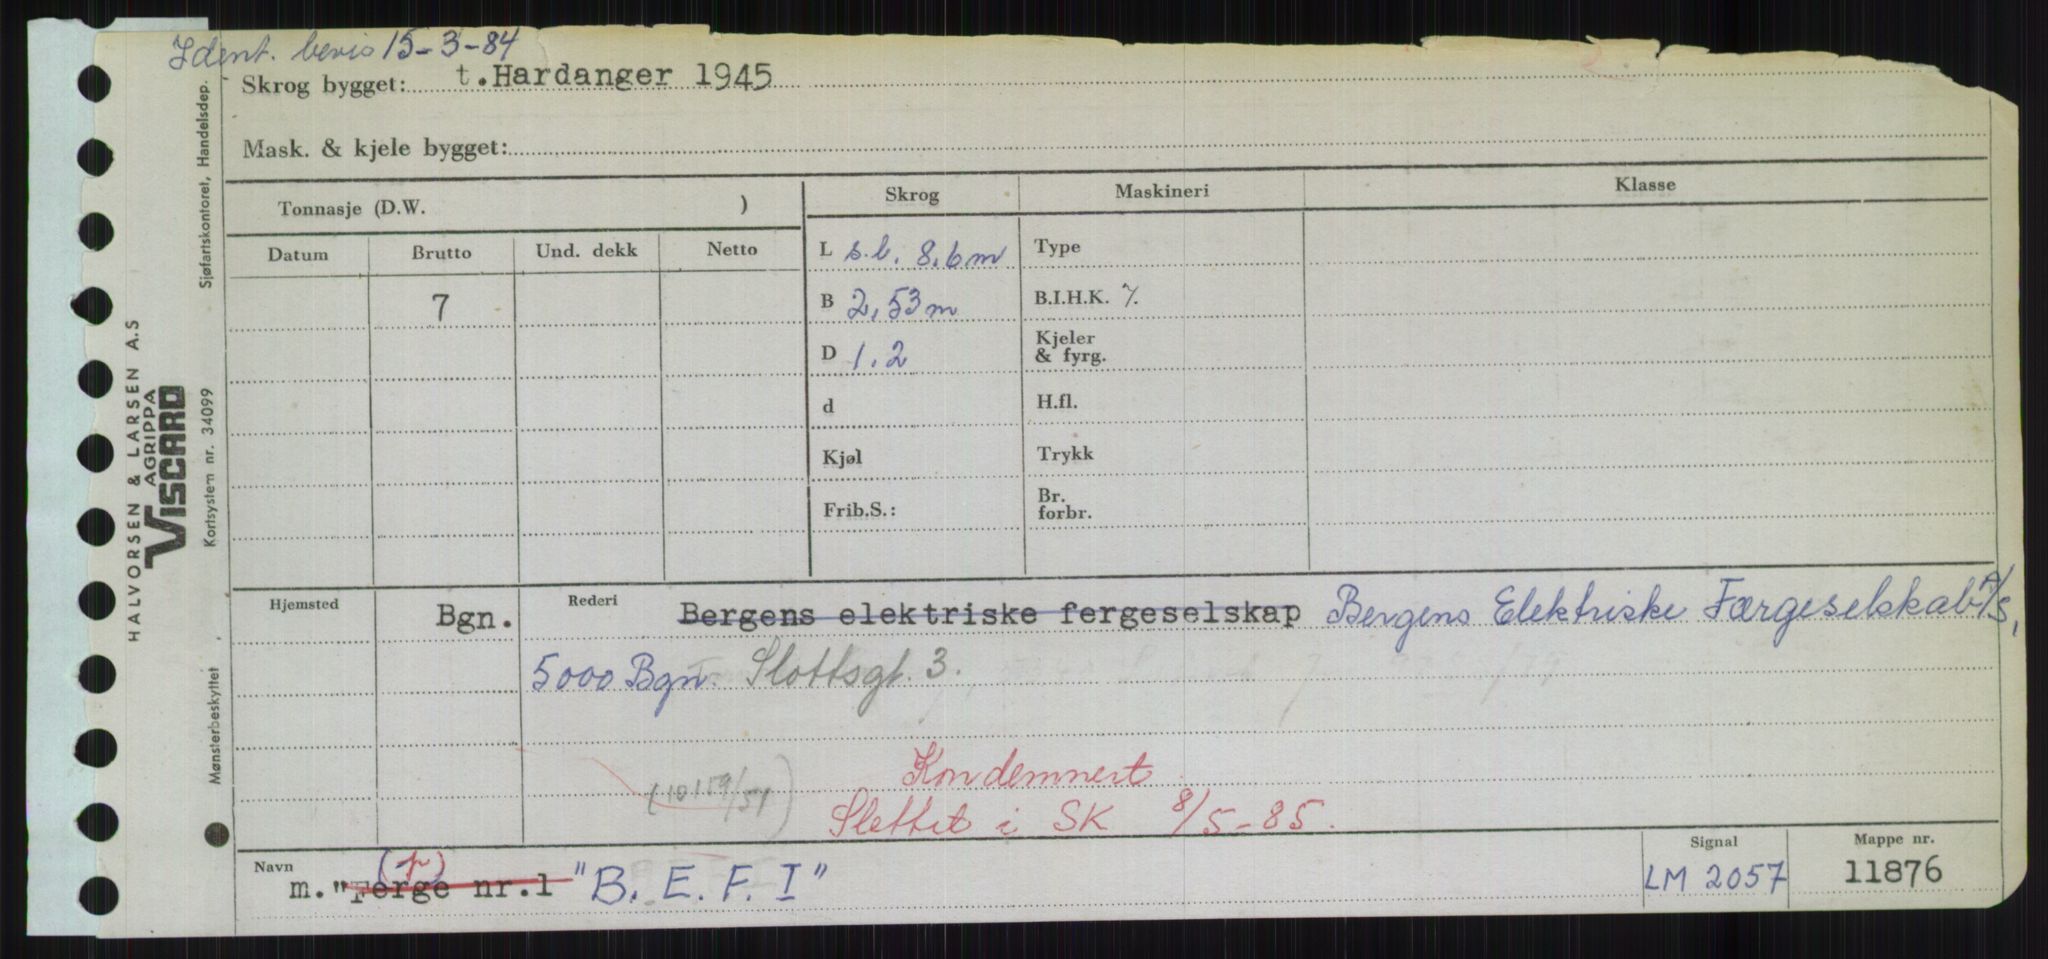 Ident. bevis 15-3-84
Skrog bygget: t. Hardanger 1945
Mask. & kjele bygget:
Tonnasje (D.W. )
Skrog Maskineri Klasse
Datum Brutto Und. dekk Netto
7
L s.l. 8.6 m Type
B 2,53 m B.I.H.K. 7.
D 1.2 Kjeler & fyrg.
d H.fl.
Kjøl Trykk
Frib.S.: Br. forbr.
Hjemsted Bgn. Rederi Bergens elektriske fergeselskap Bergens Elektriske Færgeselskab A/S,
5000 Bgn. Slottsgt. 3.
Kondemnert
(10159/51) Slettet i SK 8/5-85.
Navn (p) m. "Ferge nr.1 "B. E. F. I"
Signal LM 2057
Mappe nr. 11876
HALVORSEN & LARSEN A.S
AGRIPPA
VISCARD
Mønsterbeskyttet Kortsystem nr. 34099 Sjøfartskontoret, Handelsdep.